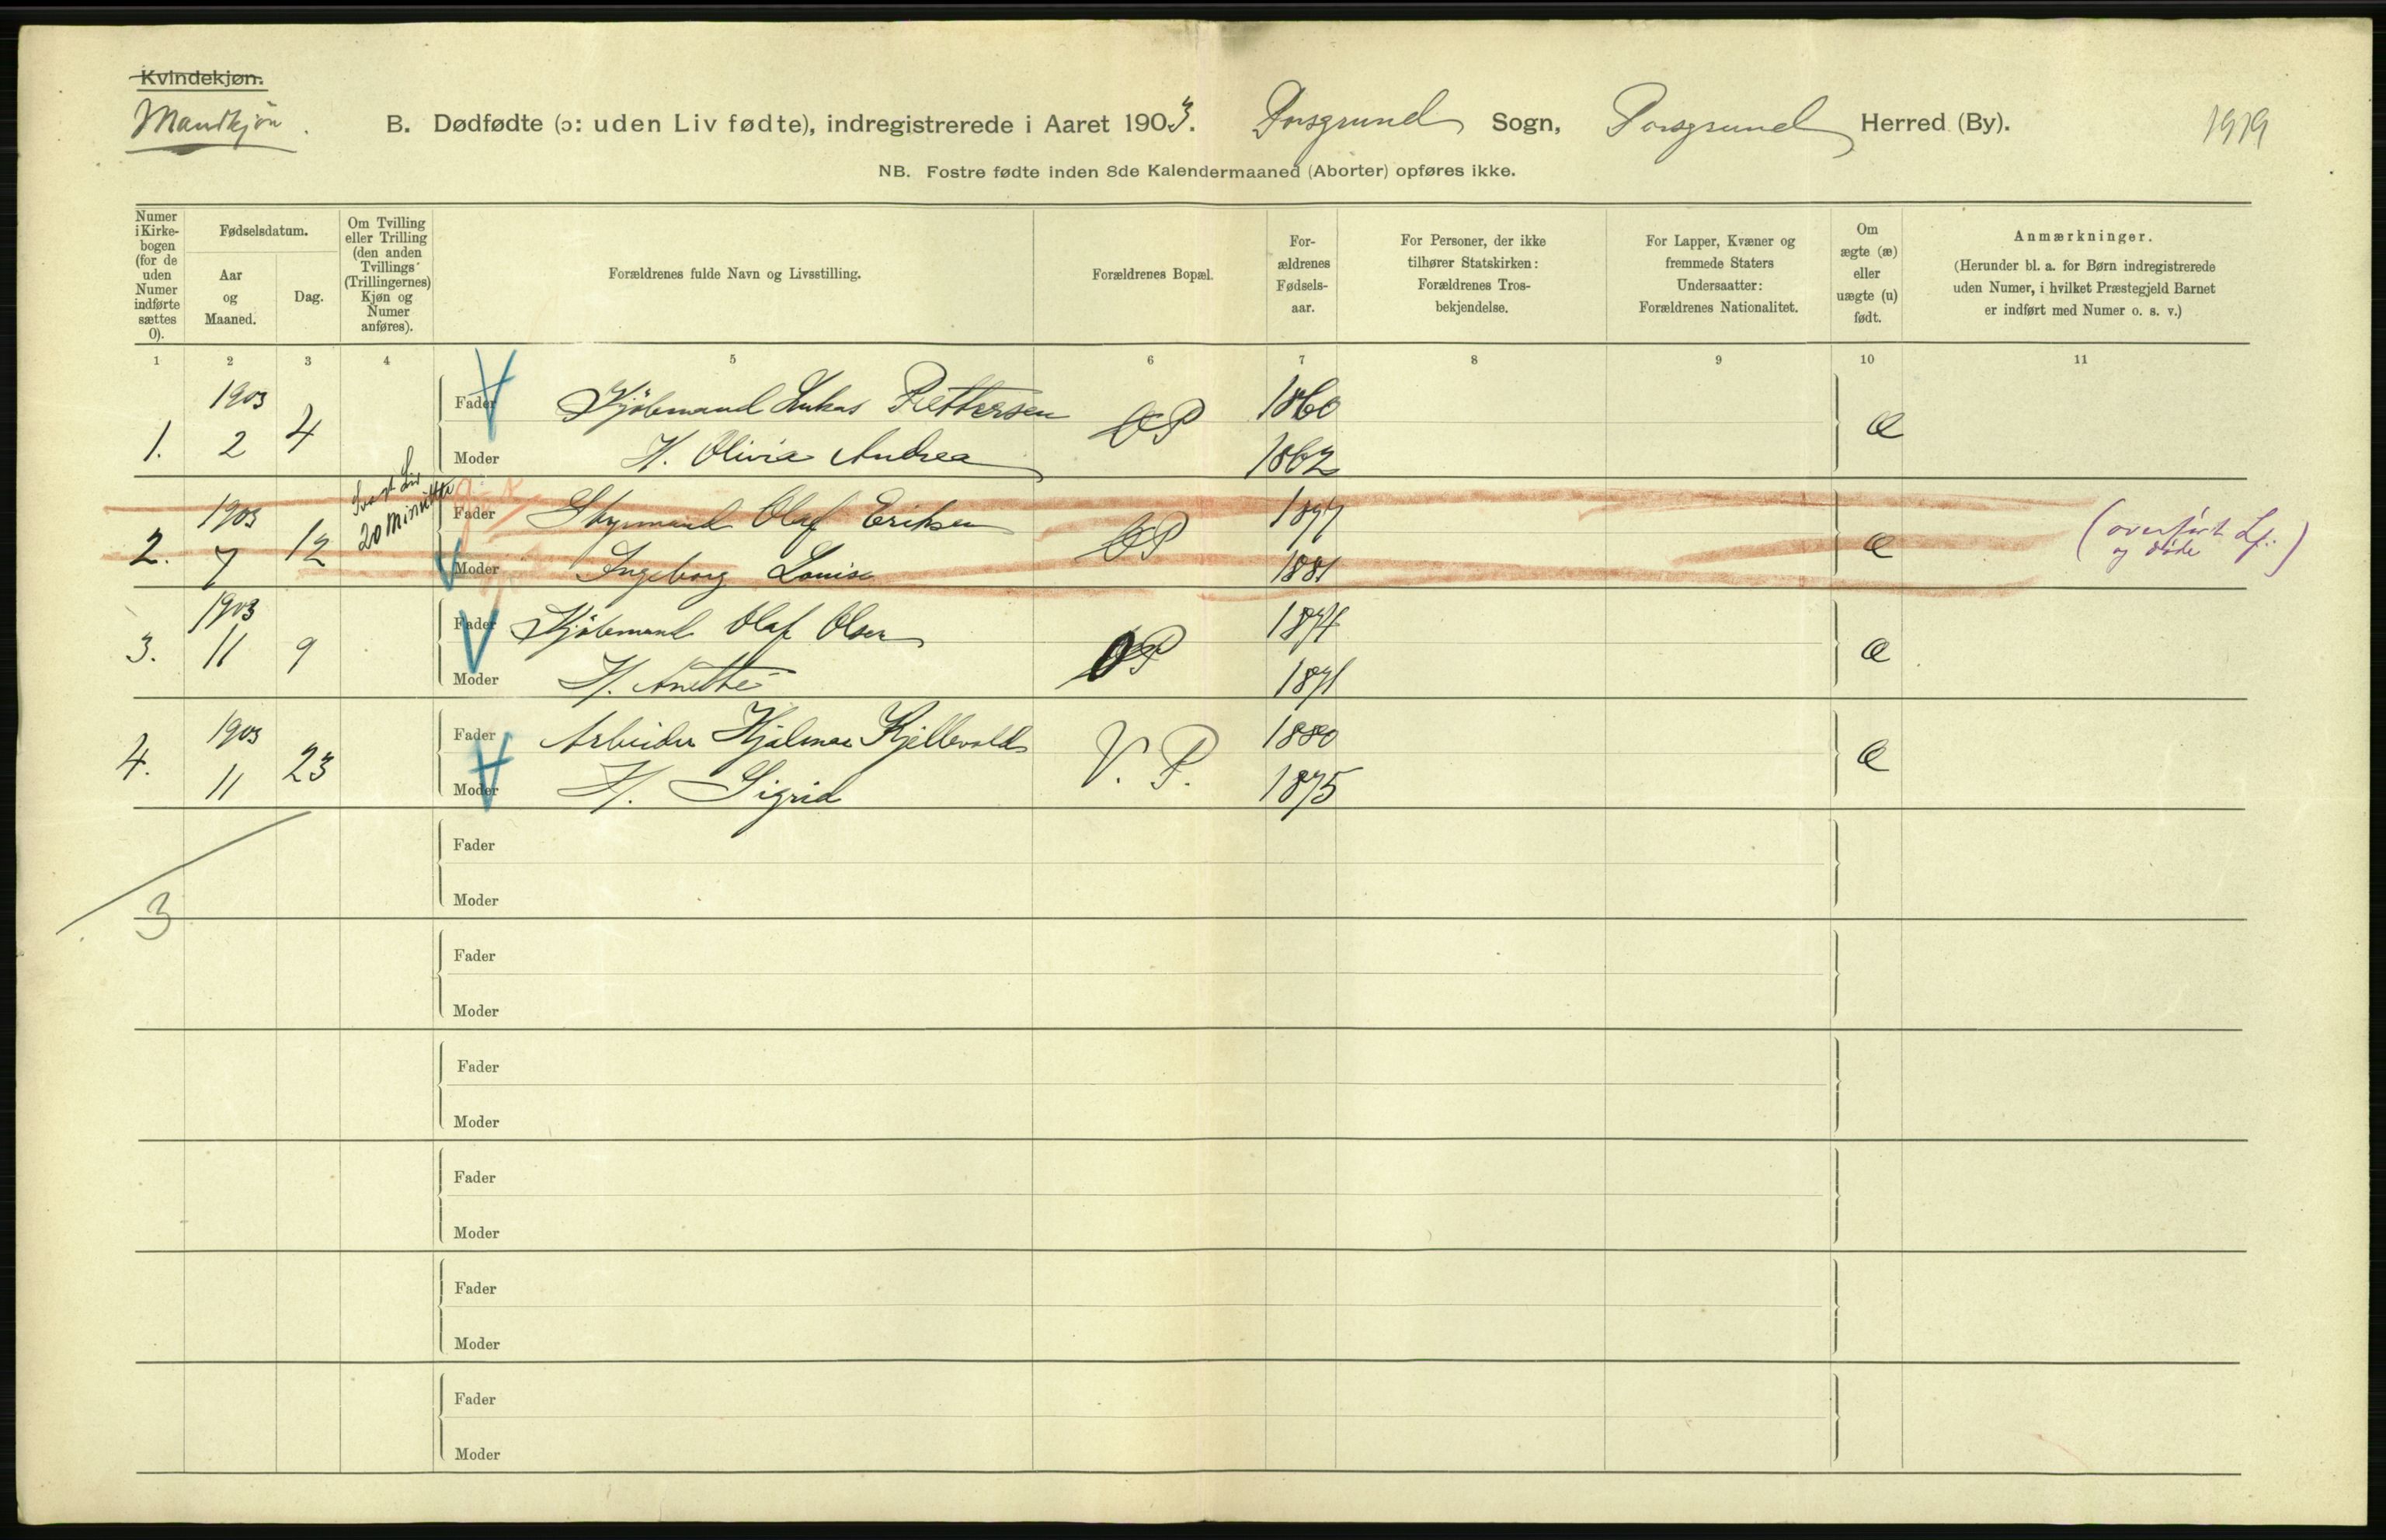 Kvindekjøn.
Mandkjøn.
B. Dødfødte (ɔ: uden Liv fødte), indregistrerede i Aaret 1903. Porsgrund Sogn, Porsgrund Herred (By). 1919
NB. Fostre fødte inden 8de Kalendermaaned (Aborter) opføres ikke.
Numer i Kirke-bogen (for de uden Numer indførte sættes 0).
Fødselsdatum.
Aar og Maaned.
Dag.
Om Tvilling eller Trilling (den anden Tvillings (Trillingernes) Kjøn og Numer anføres).
Forældrenes fulde Navn og Livsstilling.
Forældrenes Bopæl.
For-ældrenes Fødsels-aar.
For Personer, der ikke tilhører Statskirken: Forældrenes Tros-bekjendelse.
For Lapper, Kvæner og fremmede Staters Undersaatter: Forældrenes Nationalitet.
Om ægte (æ) eller uægte (u) født.
Anmærkninger.
(Herunder bl. a. for Børn indregistrerede uden Numer, i hvilket Præstegjeld Barnet er indført med Numer o. s. v.)
1 2 3 4 5 6 7 8 9 10 11
1903 Fader Kjøbmand Lukas Pettersen ØP 1860
1. 2 4 Moder H. Olivia Andrea 1862 æ
1903 20 Minutter Fader Styrmand Olaf Eriksen ØP 1877
2. 7 12 Moder Ingeborg Louise 1881 æ (overført Lf. og døde)
1903 Fader Kjøbmand Olaf Olsen ØP 1874
3. 11 9 Moder H. Anethe 1871 æ
1903 Fader Arbeider Hjalmar Kjellevold V. P. 1880
4. 11 23 Moder H. Sigrid 1875 æ
Fader
3
Moder
Fader
Moder
Fader
Moder
Fader
Moder
Fader
Moder
Fader
Moder